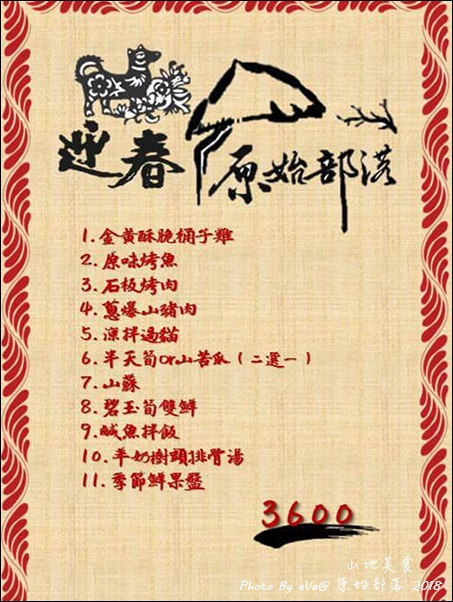 迎春 原始部落
1.金黃酥脆桶子雞
2.原味烤魚
3.石板烤肉
4.蔥爆山豬肉
5.涼拌過貓
6.半天筍or山苦瓜（二選一）
7.山蘇
8.碧玉筍雙鮮
9.鹹魚拌飯
10.羊奶樹頭排骨湯
11.季節鮮果盤
3600
山地美食
Photo By eVa@ 原始部落 2018